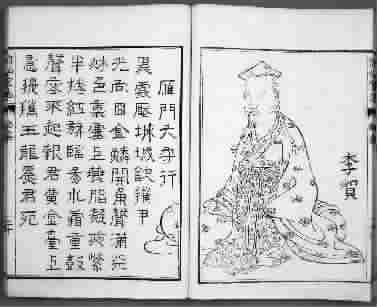 李賀
雁門太守行
黑雲壓城城欲摧甲
光向日金鱗開角聲滿天
秋色裏塞上燕脂凝夜紫
半捲紅旗臨易水霜重鼓
聲寒不起報君黃金臺上
意提攜玉龍為君死